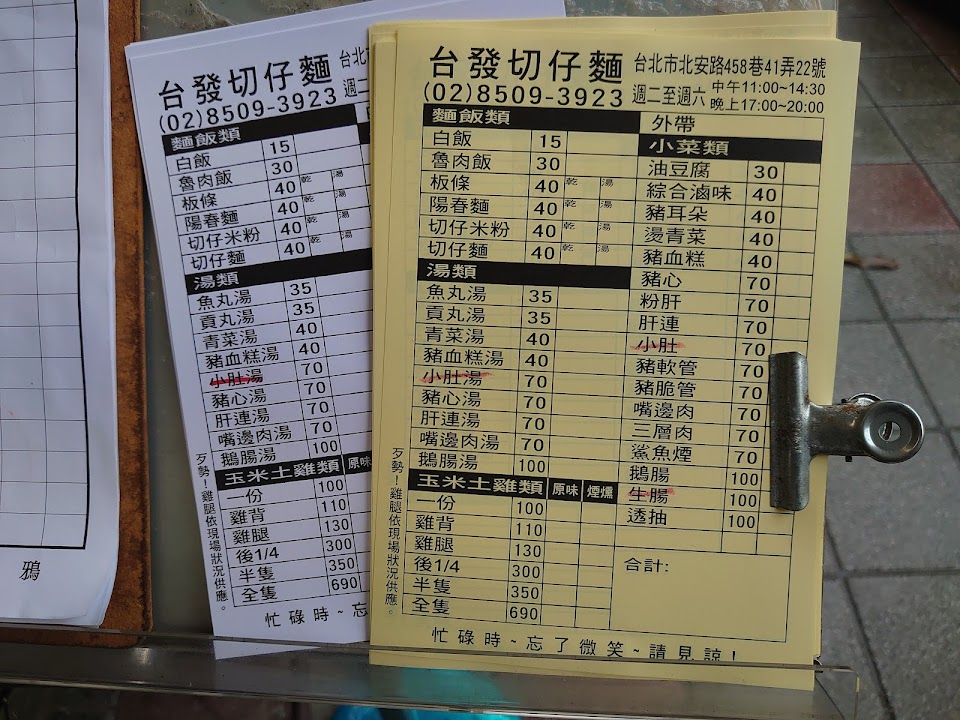 鴉
台發切仔麵 台北
(02)8509-3923 週二
麵飯類
白飯 15
魯肉飯 30
板條 40 乾 湯
陽春麵 40 乾 湯
切仔米粉 40 乾 湯
切仔麵 40 乾 湯
湯類
魚丸湯 35
貢丸湯 35
青菜湯 40
豬血糕湯 40
小肚湯 70
豬心湯 70
肝連湯 70
嘴邊肉湯 70
鵝腸湯 100
玉米土雞類 原味
一份 100
雞背 110
雞腿 130
後1/4 300
半隻 350
全隻 690
歹勢!雞腿依現場狀況供應。
忙碌時~忘
台發切仔麵 台北市北安路458巷41弄22號
(02)8509-3923 週二至週六 中午11:00~14:30
晚上17:00~20:00
麵飯類
白飯 15
魯肉飯 30
板條 40 乾 湯
陽春麵 40 乾 湯
切仔米粉 40 乾 湯
切仔麵 40 乾 湯
湯類
魚丸湯 35
貢丸湯 35
青菜湯 40
豬血糕湯 40
小肚湯 70
豬心湯 70
肝連湯 70
嘴邊肉湯 70
鵝腸湯 100
玉米土雞類 原味 煙燻
一份 100
雞背 110
雞腿 130
後1/4 300
半隻 350
全隻 690
外帶
小菜類
油豆腐 30
綜合滷味 40
豬耳朵 40
燙青菜 40
豬血糕 40
豬心 70
粉肝 70
肝連 70
小肚 70
豬軟管 70
豬脆管 70
嘴邊肉 70
三層肉 70
鯊魚煙 70
鵝腸 100
生腸 100
透抽 100
合計:
歹勢!雞腿依現場狀況供應。
忙碌時~忘了微笑~請見諒!